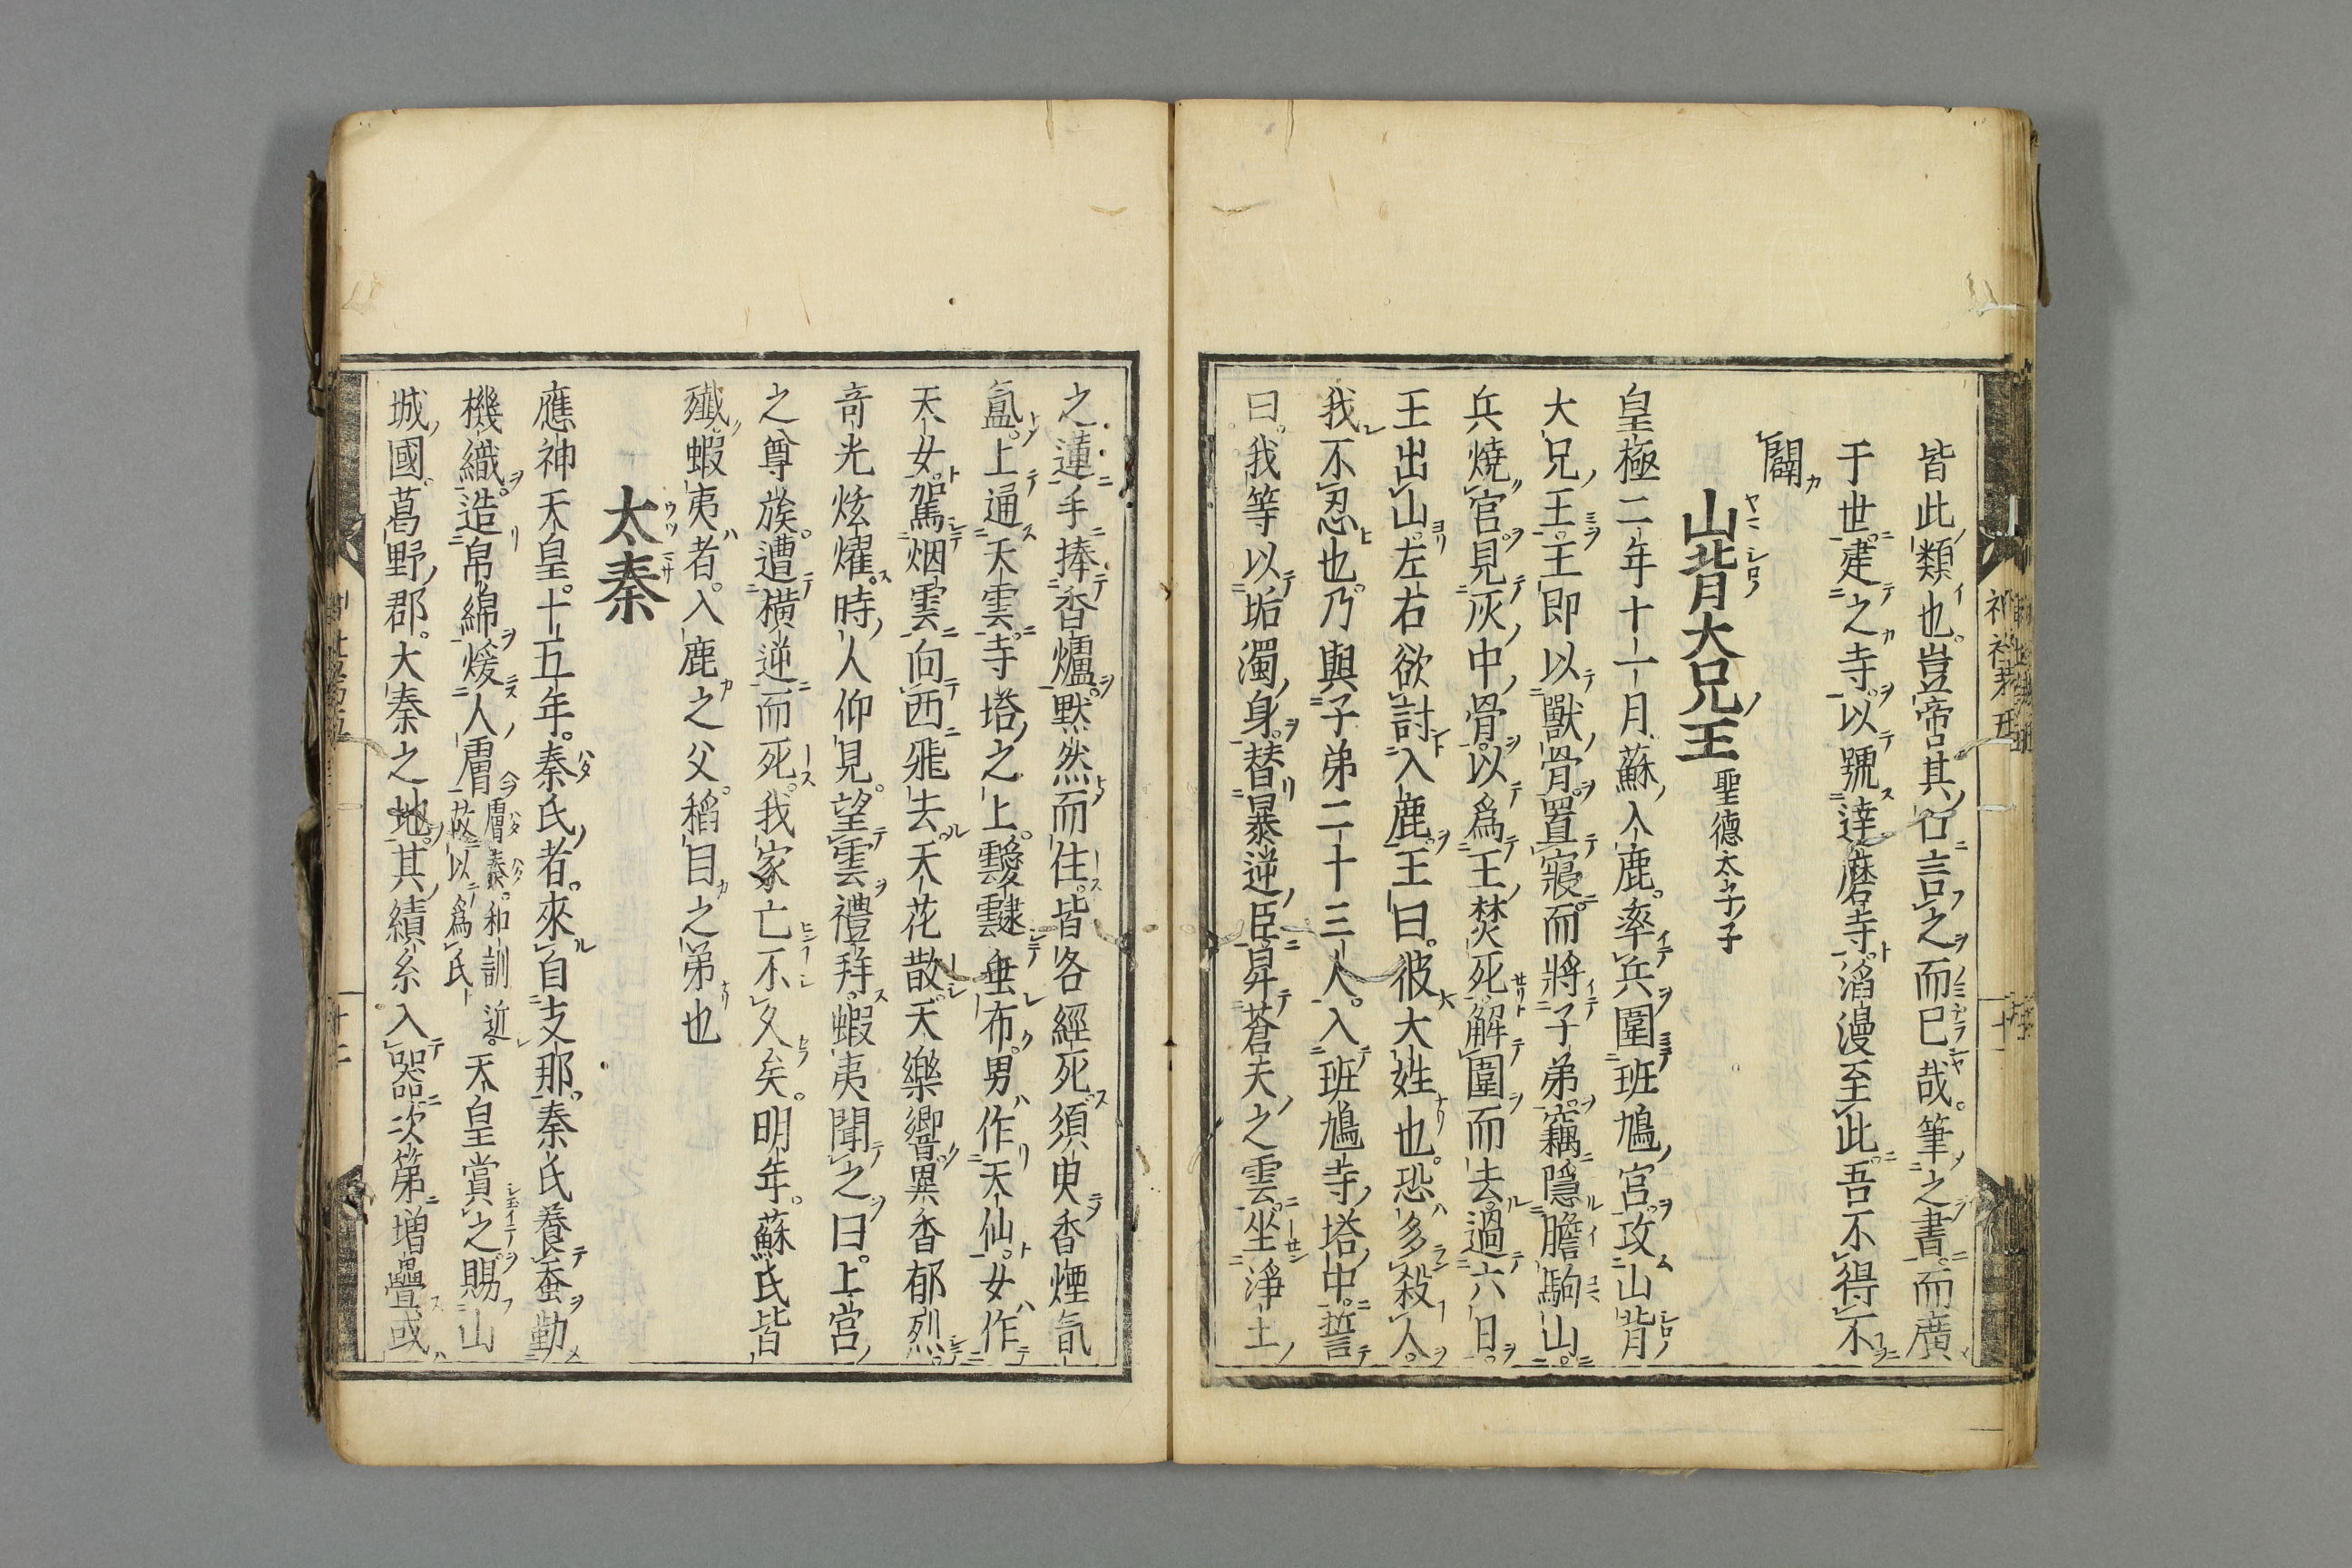 皆此類也。豈帝其行言之而已哉。筆之書。而廣
于世建之寺。以號達磨寺。滔漫至此。吾不得不
闢
山背大兄王 聖德太子子
皇極二年十一月蘇入鹿。率兵圍班鳩宮。攻山背
大兄王。王即以獸骨。置寢。而將子弟。竊隱膽駒山。
兵燒宮。見灰中骨。以為王焚死。解圍而去。過六日。
王出山。左右欲討入鹿。王曰。彼大姓也。恐多殺人。
我不忍也。乃與子弟二十三人。入班鳩寺塔中。誓
曰。我等以垢濁身。替暴逆臣。昇蒼天之雲。坐淨土
之蓮。手捧香爐。默然而住。皆各經死。須臾香煙氤
氳。上通天雲。寺塔之上。靉靆垂布。男作天仙。女作
天女。駕烟雲向西飛去。天花散。天樂響。異香郁烈。
奇光炫燿。時人仰見。望雲禮拜。蝦夷聞之曰。上宮
之尊族。遭橫逆而死。我家亡不久矣。明年。蘇氏皆
殲。蝦夷者。入鹿之父。稻目之弟也
太秦
應神天皇。十五年。秦氏者。來自支那。秦氏養蚕勤
機織。造帛綿煖人膚 今膚秦。和訓近。故以為氏 天皇賞之賜山
城國。葛野郡。大秦之地。其績糸入器次第增疊或